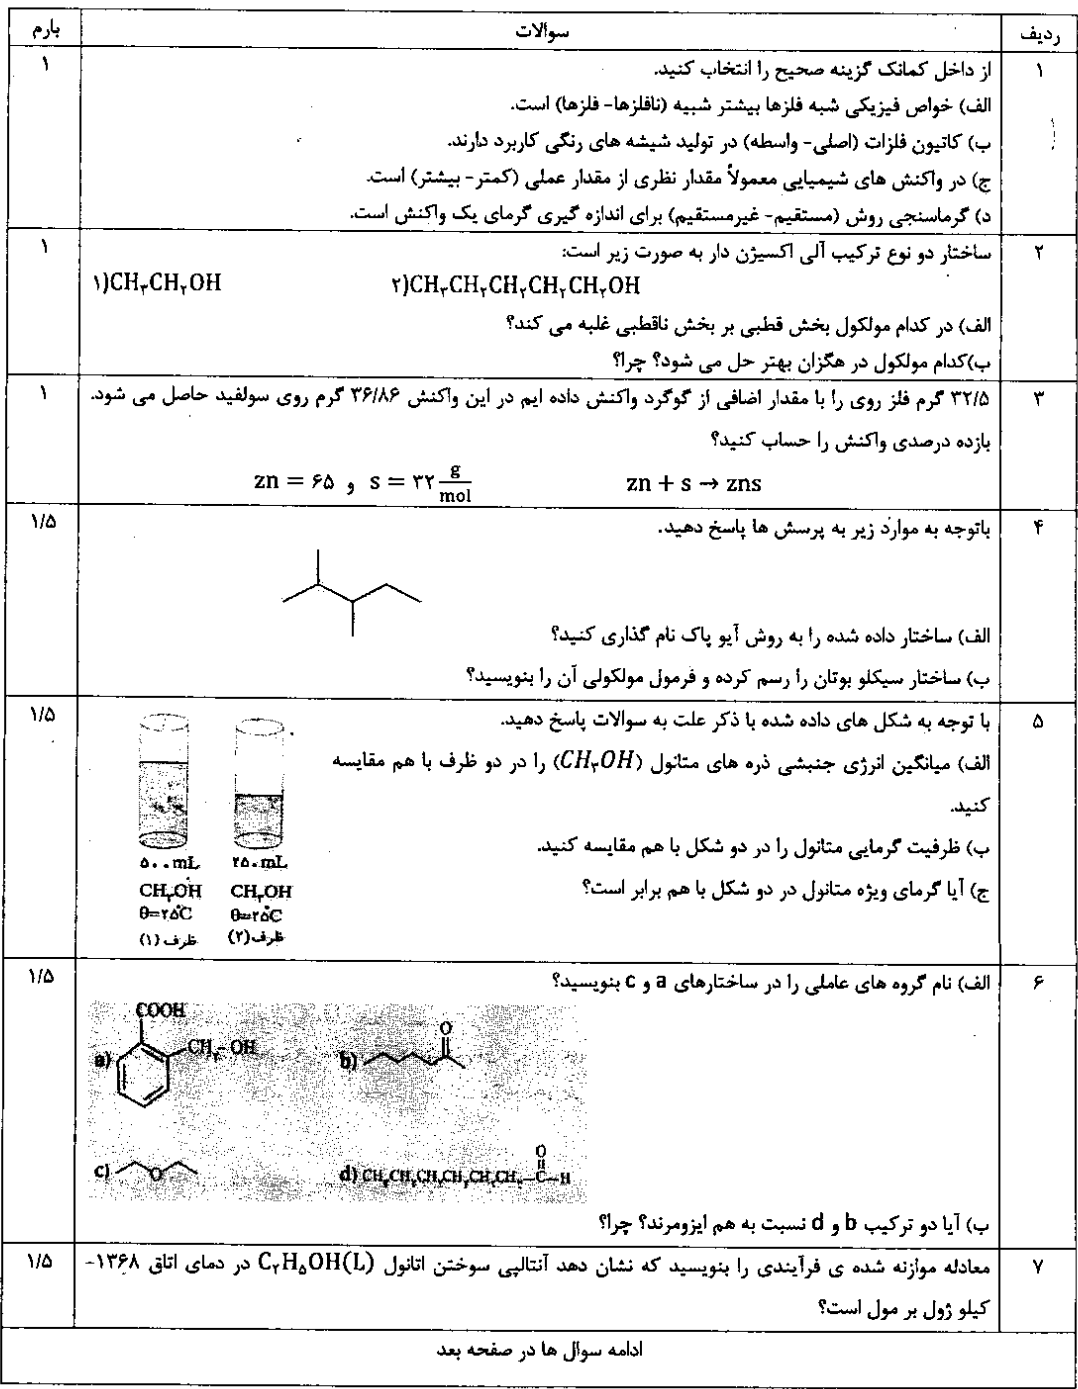 ردیف سوالات بارم
۱ از داخل کمانک گزینه صحیح را انتخاب کنید. ۱
الف) خواص فیزیکی شبه فلزها بیشتر شبیه (نافلزها- فلزها) است.
ب) کاتیون فلزات (اصلی- واسطه) در تولید شیشه های رنگی کاربرد دارند.
ج) در واکنش های شیمیایی معمولاً مقدار نظری از مقدار عملی (کمتر- بیشتر) است.
د) گرماسنجی روش (مستقیم- غیرمستقیم) برای اندازه گیری گرمای یک واکنش است.
۲ ساختار دو نوع ترکیب آلی اکسیژن دار به صورت زیر است: ۱
۱)CH۳CH۲OH ۲)CH۳CH۲CH۲CH۲CH۲OH
الف) در کدام مولکول بخش قطبی بر بخش ناقطبی غلبه می کند؟
ب)کدام مولکول در هگزان بهتر حل می شود؟ چرا؟
۳ ۳۲/۵ گرم فلز روی را با مقدار اضافی از گوگرد واکنش داده ایم در این واکنش ۳۶/۸۶ گرم روی سولفید حاصل می شود. ۱
بازده درصدی واکنش را حساب کنید؟
zn = ۶۵ و s = ۳۲ g/mol zn + s → zns
۴ باتوجه به موارد زیر به پرسش ها پاسخ دهید. ۱/۵
الف) ساختار داده شده را به روش آیو پاک نام گذاری کنید؟
ب) ساختار سیکلو بوتان را رسم کرده و فرمول مولکولی آن را بنویسید؟
۵ با توجه به شکل های داده شده با ذکر علت به سوالات پاسخ دهید. ۱/۵
الف) میانگین انرژی جنبشی ذره های متانول (CH۳OH) را در دو ظرف با هم مقایسه
کنید.
ب) ظرفیت گرمایی متانول را در دو شکل با هم مقایسه کنید.
ج) آیا گرمای ویژه متانول در دو شکل با هم برابر است؟
۵۰۰mL ۲۵۰mL
CH۳OH CH۳OH
θ=۲۵°C θ=۲۵°C
ظرف(۱) ظرف(۲)
۶ الف) نام گروه های عاملی را در ساختارهای a و c بنویسید؟ ۱/۵
COOH
a) CH۲-OH b) O
c) O d) CH۳CH۲CH۲CH۲CH۲CH۲-C-H
O
ب) آیا دو ترکیب b و d نسبت به هم ایزومرند؟ چرا؟
۷ معادله موازنه شده ی فرآیندی را بنویسید که نشان دهد آنتالپی سوختن اتانول C۲H۵OH(L) در دمای اتاق ۱۳۶۸- ۱/۵
کیلو ژول بر مول است؟
ادامه سوال ها در صفحه بعد